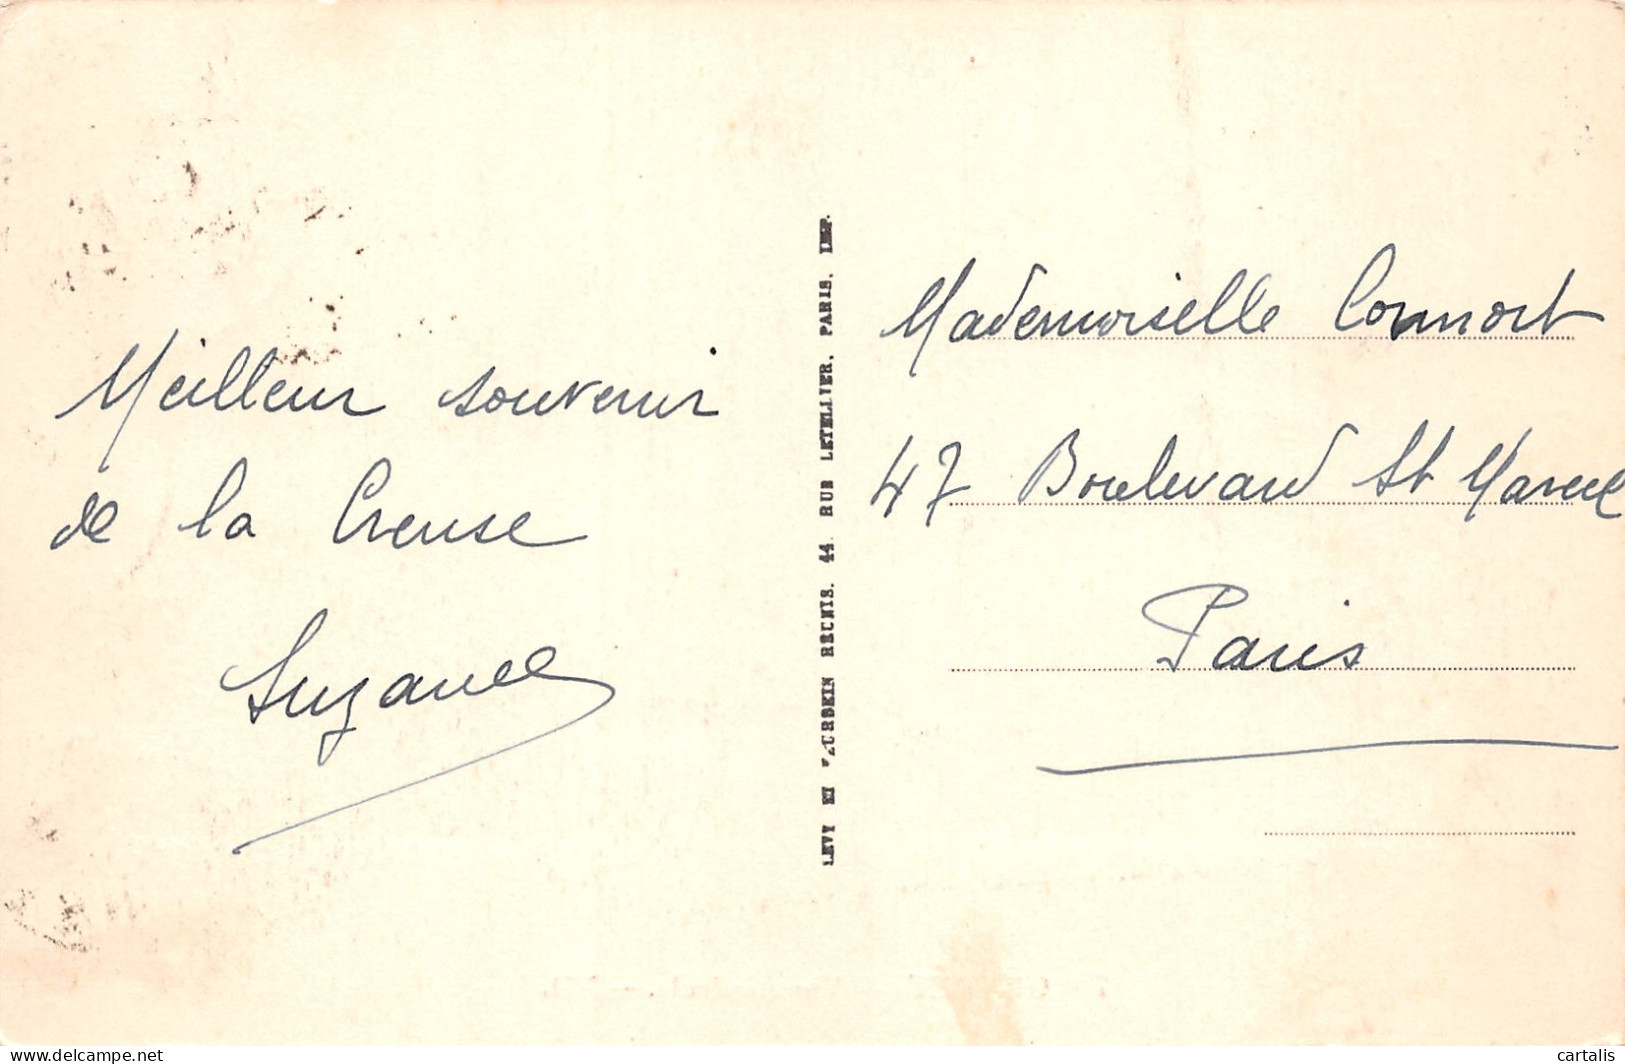 Meilleur souvenir
de la Creuse
Suzanne
LEVY ET NEURDEIN RÉUNIS. 44. RUE LETELLIER. PARIS. IMP.
Mademoiselle
47 Boulevard St Marcel
Paris
www.delcampe.net
cartalis